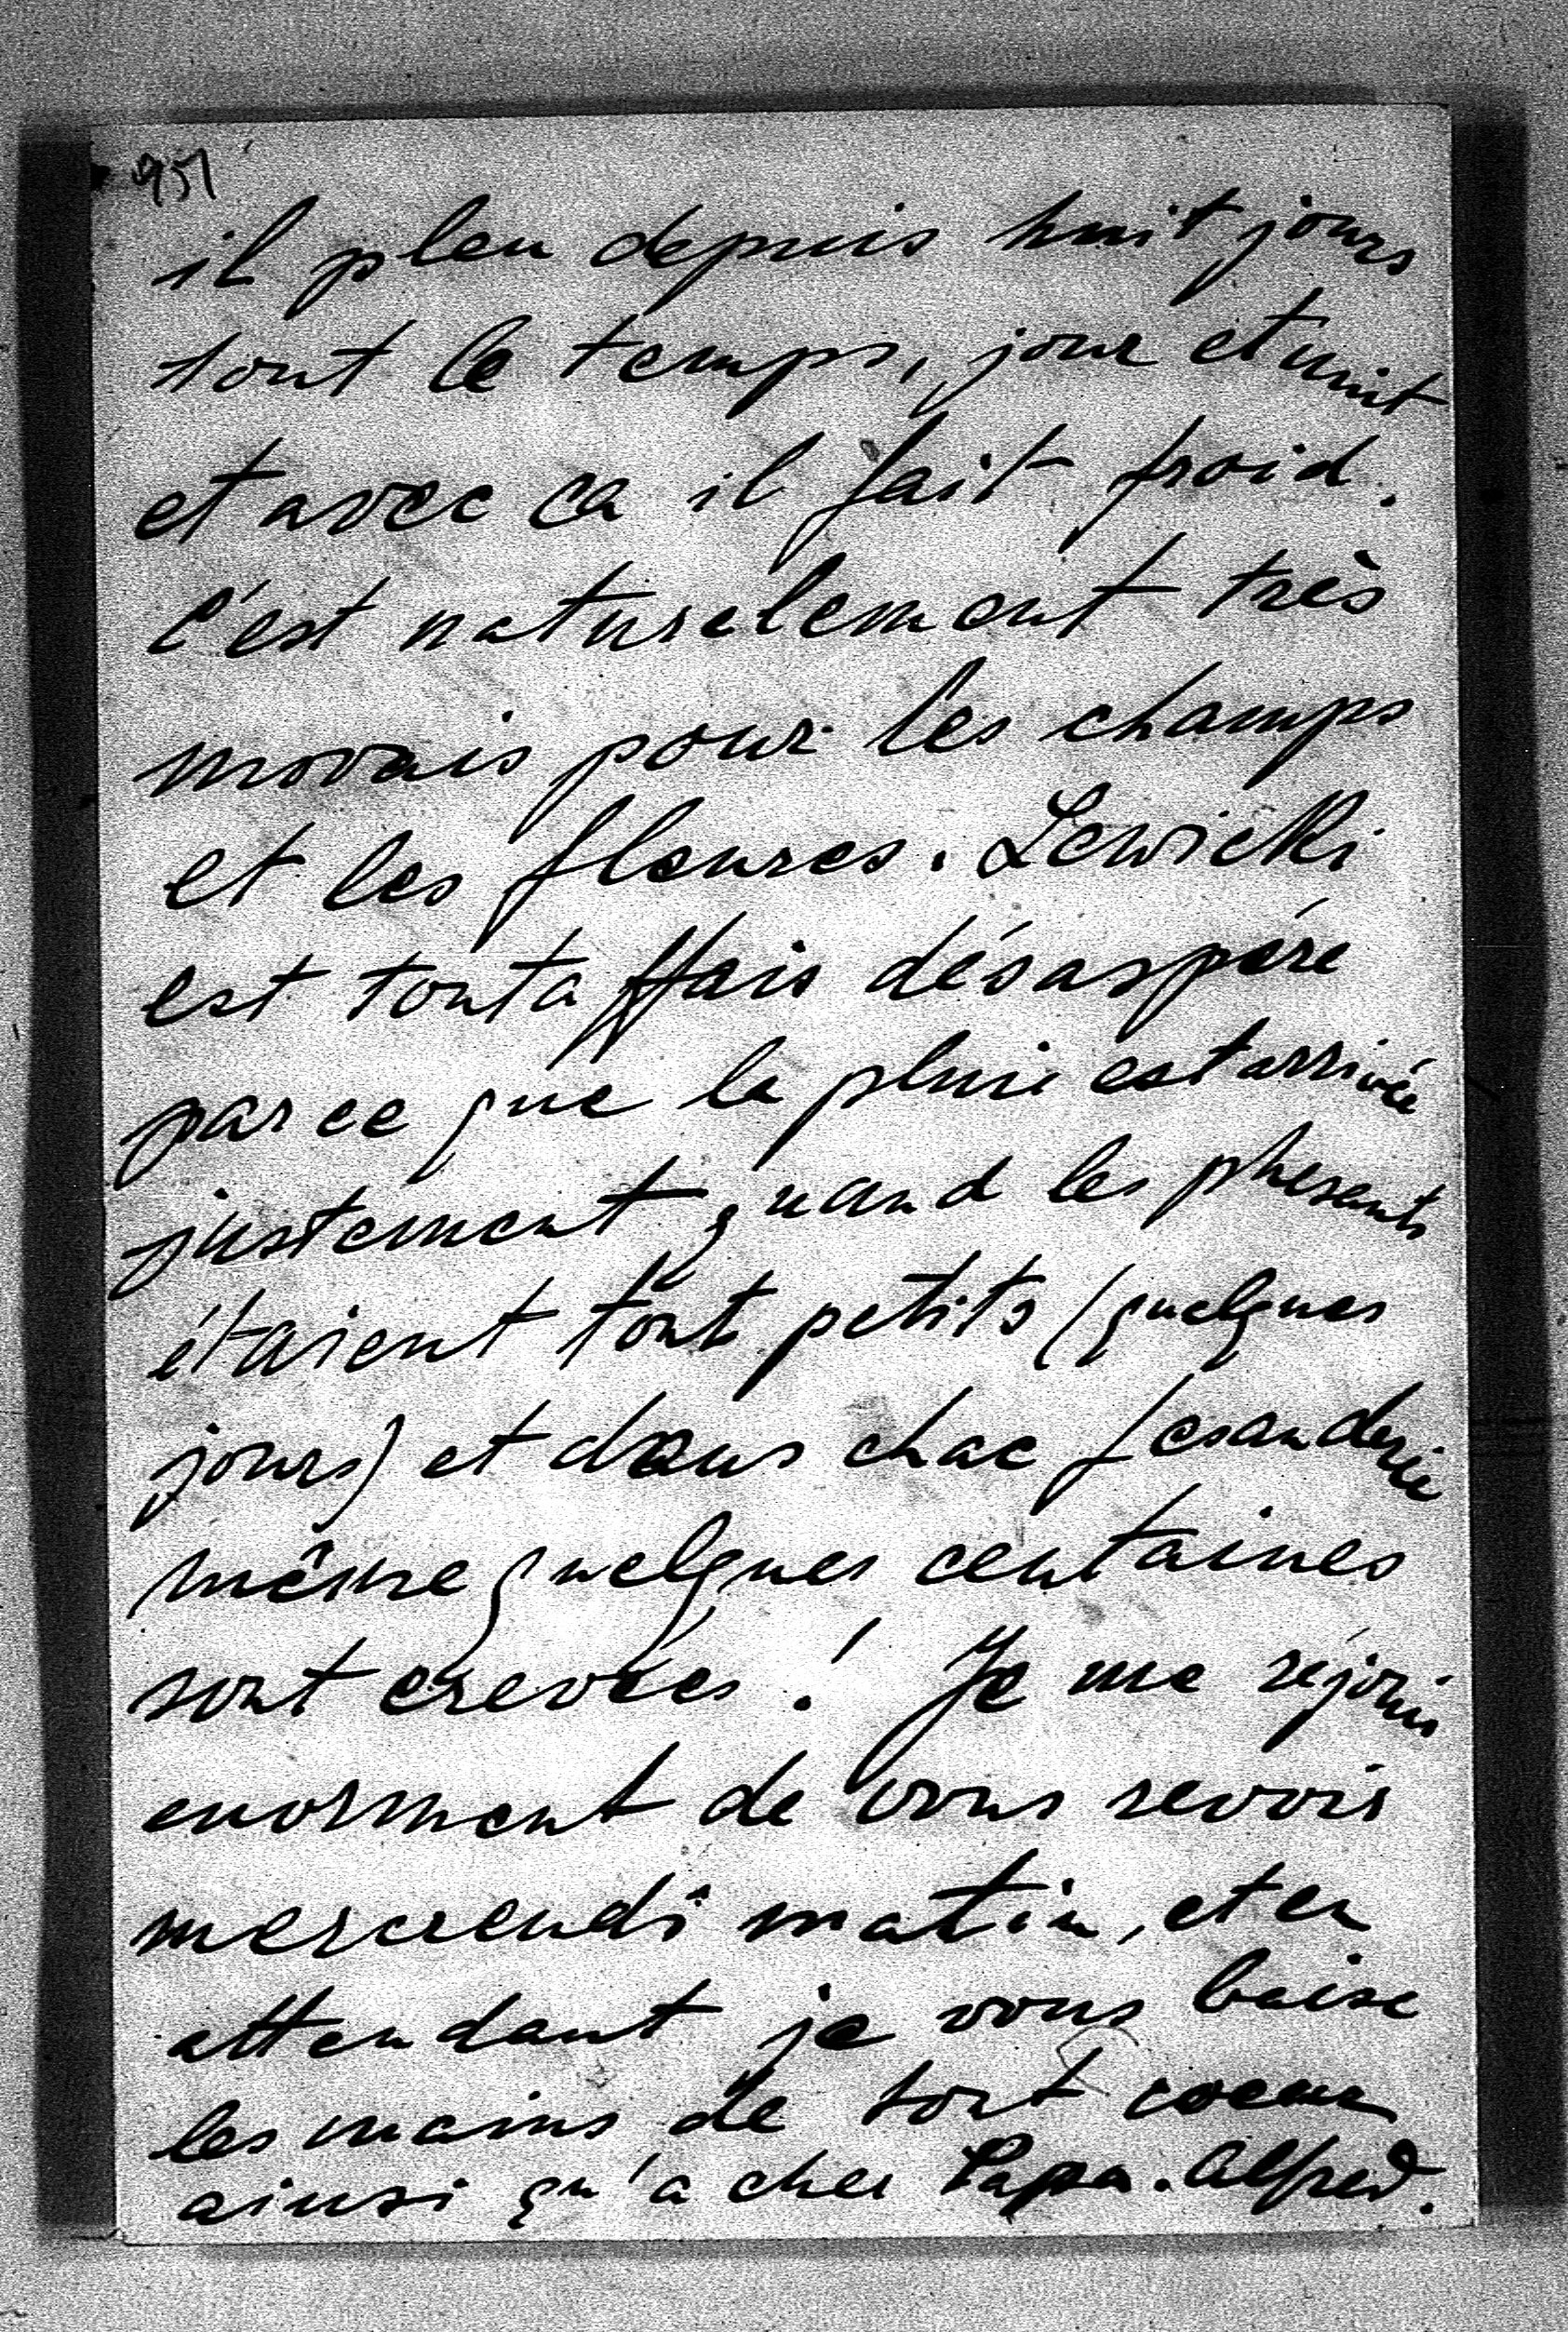 951
il pleu depuis huit jours
tout le temps, jour et nuit
et avec ca il fait froid.
C'est naturelement très
movais pour les champs
et les fleures. Lewicki
est touta ffais désaspére
parce que la pluie est arrivée
justement quand les phesants
étaient tout petits (quelques
jours) et dans chac fesanderie
même quelques centaines
sont crevées! Je me réjouis
enorment de vous revoir
mercrendi matin, et en
attendant je vous baise
les mains de tout coeur
ainsi qu'a cher Papa. Alfred.